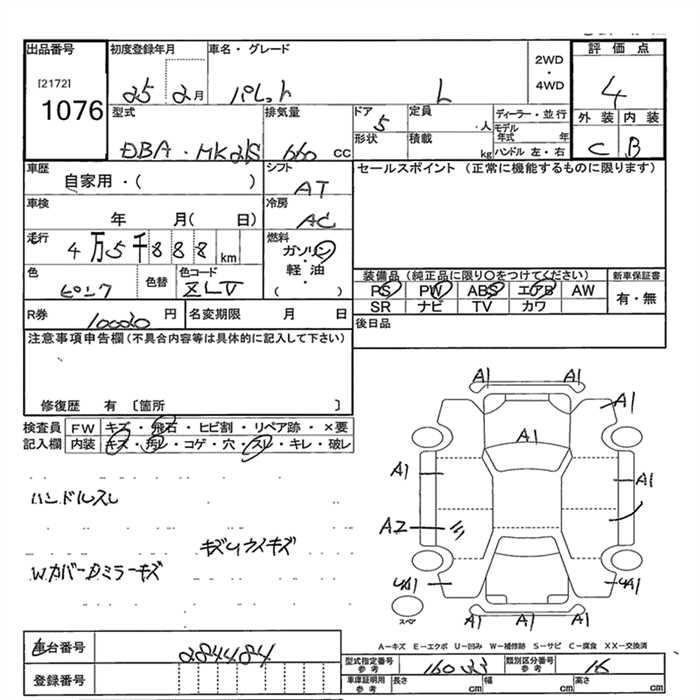 出品番号 初度登録年月 車名・グレード 2WD・4WD 評価点
[2172] 1076 25 2月 パレット L 4
型式 排気量 ドア 5 定員 人 ディーラー・並行 外装 内装
DBA・MK21S 660 cc 形状 積載 kg モデル年式 年 ハンドル 左・右 C B
車歴 自家用・( ) シフト AT セールスポイント (正常に機能するものに限ります)
車検 年 月(日) 冷房 AC
走行 4万5千888km 燃料 ガソリン
軽・油
( )
色 ピンク 色替 色コード ZLV
装備品 (純正品に限り○をつけてください) 新車保証書
PS PW ABS エアB AW 有・無
SR ナビ TV カワ
R券 10020円 名変期限 月 日 後日品
注意事項申告欄(不具合内容等は具体的に記入して下さい)
修復歴 有 〔箇所 〕
検査員 FW キズ・飛石・ヒビ割・リペア跡・×要
記入欄 内装 キズ・汚レ・コゲ・穴・スレ・キレ・破レ
ハンドルスレ
キズウスイキズ
W.カバーDミラーキズ
A1 A1
A1
A1
A1 A1
A2
4A1 4A1
スペア A1 A1 A1
A-キズ E-エクボ U-凹み W-補修跡 S-サビ C-腐食 XX-交換済
車台番号 284484
登録番号
型式指定番号 参考 16033 類別区分番号 参考 16
車庫証明用 参考 長さ cm 幅 cm 高さ cm